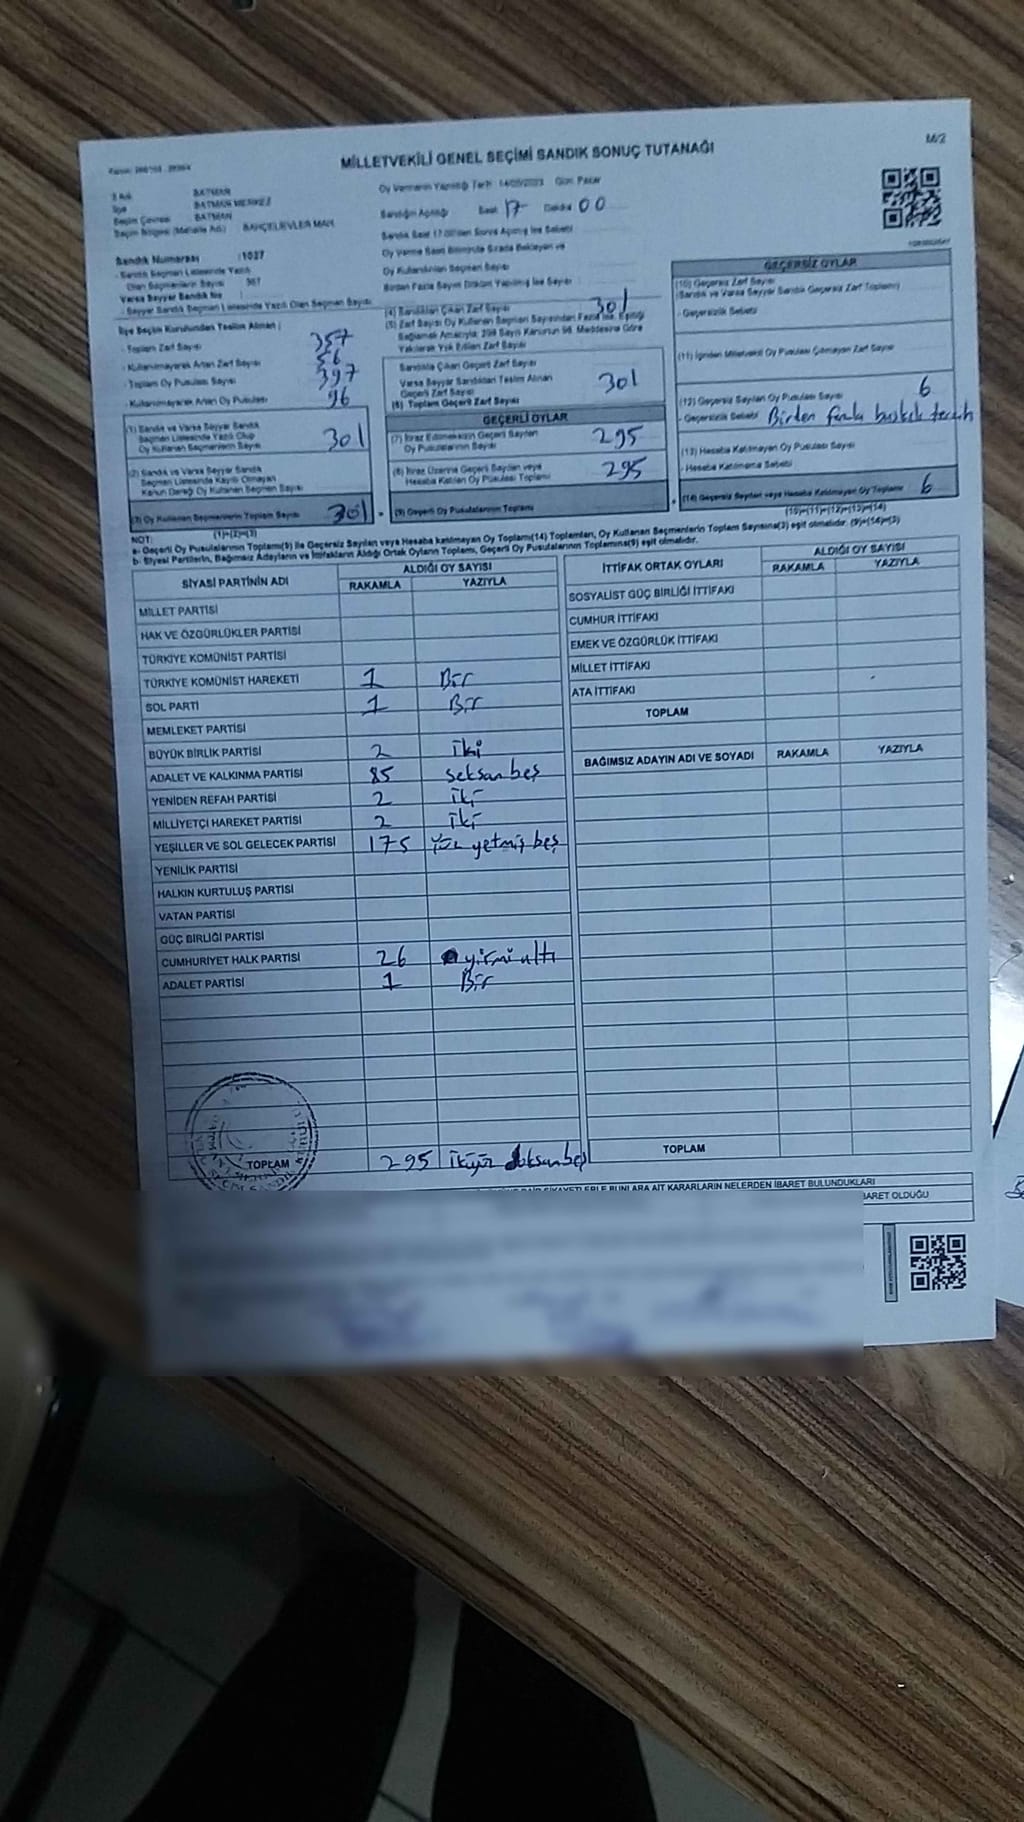 M/2
MİLLETVEKİLİ GENEL SEÇİMİ SANDIK SONUÇ TUTANAĞI
BATMAN
İlçe BATMAN MERKEZ
Seçim Çevresi BATMAN
Seçim Bölgesi (Mahalle Adı) BAHÇELİEVLER MAH.
Oy Vermenin Yapıldığı Tarih 14/05/2023 Gün: Pazar
Sandığın Açıldığı Saat 17 Dakika 00
Oy Kullandırılan Seçmen Sayısı
Sandık Numarası : 1037
- Sandık Seçmen Listesinde Yazılı
Olan Seçmenlerin Sayısı
Varsa Seyyar Sandık No
- Seyyar Sandık Seçmen Listesinde Yazılı Olan Seçmen Sayısı
İlçe Seçim Kurulundan Teslim Alınan
- Toplam Zarf Sayısı 357
- Kullanılmayarak Artan Zarf Sayısı 56
- Toplam Oy Pusulası Sayısı 397
- Kullanılmayarak Artan Oy Pusulası 96
(1) Sandık ve Varsa Seyyar Sandık
Seçmen Listesinde Yazılı Olup
Oy Kullanan Seçmenlerin Sayısı 301
(2) Sandık ve Varsa Seyyar Sandık
Seçmen Listesinde Kayıtlı Olmayan
Kanun Gereği Oy Kullanan Seçmen Sayısı
(3) Oy Kullanan Seçmenlerin Toplam Sayısı 301
(1)+(2)=(3)
(4) Sandıktan Çıkan Zarf Sayısı 301
(5) Zarf Sayısı Oy Kullanan Seçmen Sayısından Fazla ise, Eşitliği
Sağlamak Amacıyla, 298 Sayılı Kanunun 98. Maddesine Göre
Yakılarak Yok Edilen Zarf Sayısı
Sandıkta Çıkan Geçerli Zarf Sayısı
Varsa Seyyar Sandıktan Teslim Alınan
Geçerli Zarf Sayısı
(6) Toplam Geçerli Zarf Sayısı 301
GEÇERLİ OYLAR
(7) İtiraz Edilmeksizin Geçerli Sayılan
Oy Pusulalarının Sayısı 295
(8) İtiraz Üzerine Geçerli Sayılan veya
Hesaba Katılan Oy Pusulası Toplamı 295
(9) Geçerli Oy Pusulalarının Toplamı
GEÇERSİZ OYLAR
(10) Geçersiz Zarf Sayısı
(Sandık ve Varsa Seyyar Sandık Geçersiz Zarf Toplamı)
- Geçersizlik Sebebi
(11) İçinden Milletvekili Oy Pusulası Çıkmayan Zarf Sayısı
(12) Geçersiz Sayılan Oy Pusulası Sayısı 6
- Geçersizlik Sebebi Birden fazla
(13) Hesaba Katılmayan Oy Pusulası Sayısı
- Hesaba Katılmama Sebebi
(14) Geçersiz Sayılan veya Hesaba Katılmayan Oy Toplamı 6
(10)+(11)+(12)+(13)=(14)
NOT:
a- Geçerli Oy Pusulalarının Toplamı(9) ile Geçersiz Sayılan veya Hesaba katılmayan Oy Toplamı(14) Toplamları, Oy Kullanan Seçmenlerin Toplam Sayısına(3) eşit olmalıdır. (9)+(14)=(3)
b- Siyasi Partilerin, Bağımsız Adayların ve İttifakların Aldığı Ortak Oyların Toplamı, Geçerli Oy Pusulalarının Toplamına(9) eşit olmalıdır.
SİYASİ PARTİNİN ADI
ALDIĞI OY SAYISI
RAKAMLA YAZIYLA
MİLLET PARTİSİ
HAK VE ÖZGÜRLÜKLER PARTİSİ
TÜRKİYE KOMÜNİST PARTİSİ
TÜRKİYE KOMÜNİST HAREKETİ 1 Bir
SOL PARTİ 1 Bir
MEMLEKET PARTİSİ
BÜYÜK BİRLİK PARTİSİ 2 iki
ADALET VE KALKINMA PARTİSİ 85 seksan beş
YENİDEN REFAH PARTİSİ 2 iki
MİLLİYETÇİ HAREKET PARTİSİ 2 iki
YEŞİLLER VE SOL GELECEK PARTİSİ 175 Yüz yetmiş beş
YENİLİK PARTİSİ
HALKIN KURTULUŞ PARTİSİ
VATAN PARTİSİ
GÜÇ BİRLİĞİ PARTİSİ
CUMHURİYET HALK PARTİSİ 26 yirmi altı
ADALET PARTİSİ 1 Bir
TOPLAM 295 ikiyüz doksanbeş
İTTİFAK ORTAK OYLARI
ALDIĞI OY SAYISI
RAKAMLA YAZIYLA
SOSYALİST GÜÇ BİRLİĞİ İTTİFAKI
CUMHUR İTTİFAKI
EMEK VE ÖZGÜRLÜK İTTİFAKI
MİLLET İTTİFAKI
ATA İTTİFAKI
TOPLAM
BAĞIMSIZ ADAYIN ADI VE SOYADI RAKAMLA YAZIYLA
TOPLAM
ŞİKAYETLERLE BUNLARA AİT KARARLARIN NELERDEN İBARET BULUNDUKLARI
İBARET OLDUĞU